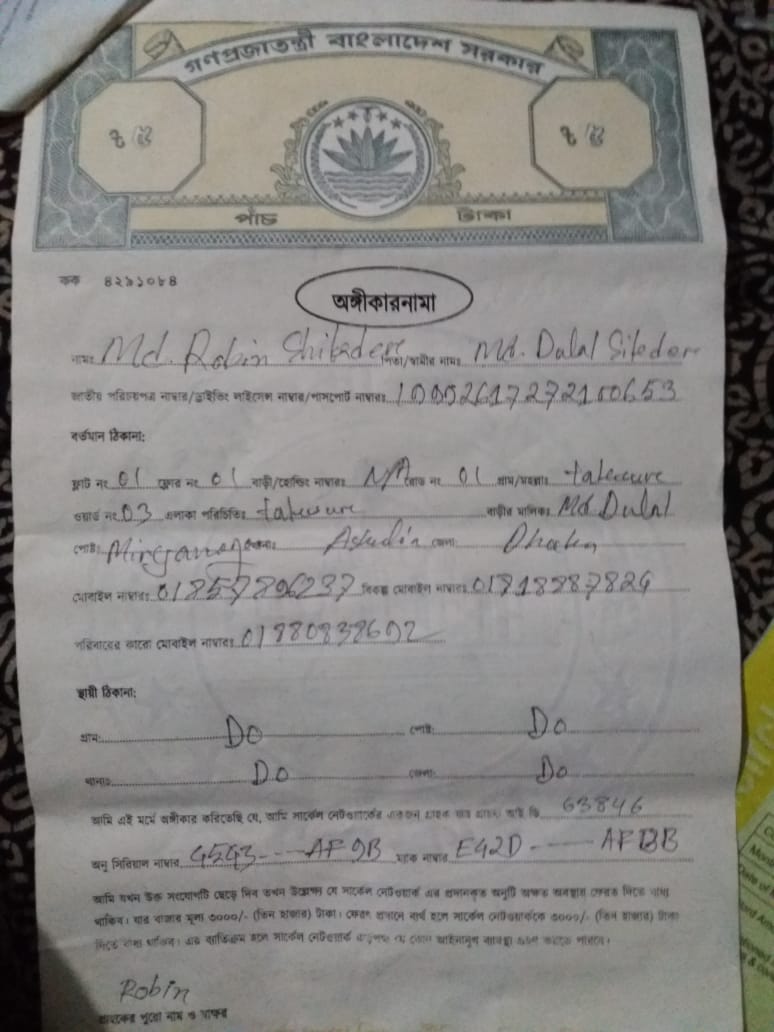 গণপ্রজাতন্ত্রী বাংলাদেশ সরকার
পাঁচ টাকা
কক ৪২৯১০৮৪
অঙ্গীকারনামা
নামঃ Md. Robin Shikder পিতা/স্বামীর নামঃ Md. Dulal Sikder
জাতীয় পরিচয়পত্র নাম্বার/ড্রাইভিং লাইসেন্স নাম্বার/পাসপোর্ট নাম্বারঃ
বর্তমান ঠিকানা:
ফ্লাট নং 01 ফ্লোর নং 01 বাড়ী/হোল্ডিং নাম্বারঃ N/A রোড নং 01 গ্রাম/মহল্লাঃ
ওয়ার্ড নং 03 এলাকা পরিচিতিঃ বাড়ীর মালিকঃ Md. Dulal
পোষ্টঃ থানাঃ জেলাঃ Dhaka
মোবাইল নাম্বারঃ 01857896237 বিকল্প মোবাইল নাম্বারঃ
পরিবারের কারো মোবাইল নাম্বারঃ
স্থায়ী ঠিকানা:
গ্রামঃ Do পোষ্টঃ Do
থানাঃ Do জেলাঃ Do
আমি এই মর্মে অঙ্গীকার করিতেছি যে, আমি সার্কেল নেটওয়ার্কের একজন গ্রাহক যার গ্রাহক আই ডি 63846
অনু সিরিয়াল নাম্বার G5G3----AF9B ম্যাক নাম্বার E42D----
আমি যখন উক্ত সংযোগটি ছেড়ে দিব তখন উল্লেখ্য যে সার্কেল নেটওয়ার্ক এর প্রদানকৃত অনুটি অক্ষত অবস্থায় ফেরত দিতে বাধ্য
থাকিব। যার বাজার মূল্য ৩০০০/- (তিন হাজার) টাকা। ফেরৎ প্রদানে ব্যর্থ হলে সার্কেল নেটওয়ার্ককে ৩০০০/- (তিন হাজার) টাকা
দিতে বাধ্য থাকিব। এর ব্যতিক্রম হলে সার্কেল নেটওয়ার্ক কতৃপক্ষ যে কোন আইনানুগ ব্যবস্থা গ্রহণ করতে পারবে।
Robin
গ্রাহকের পুরো নাম ও স্বাক্ষর